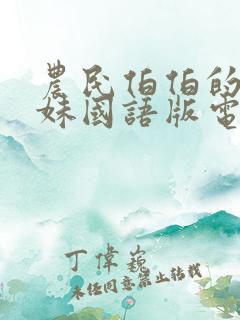 農民伯伯的
妹國語版電
丁偉巍
未經同意禁止轉載